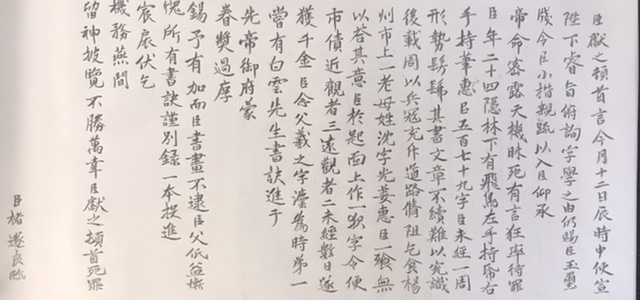 臣獻之頓首言今月十二日辰時中使宣
陛下睿旨俯詢字學之由仍賜臣玉璽
牋令臣小楷親疏以入臣仰承
帝命密露天機昧死有言狂率待罪
臣年二十四隱林下有飛鳥左手持帋右
手持筆惠臣五百七十九字臣未經一周
形勢髣髴其書文章不續難以究識
後載周以兵寇充斥道路脩阻乞食楊
州市上一老母姓沈字光姜惠臣一飱無
以答其意臣於匙面上作一夜字令便
市債近觀者三遠觀者二未經數日遂
獲千金臣念父羲之字灋為時第一
嘗有白雲先生書訣進于
先帝御府蒙
眷獎過厚
錫予有加而臣書畫不逮臣父伏益慚
愧所有書訣謹別錄一本投進
宸扆伏乞
機務燕閒
留神披覽不勝萬幸臣獻之頓首死罪
臣褚遂良臨